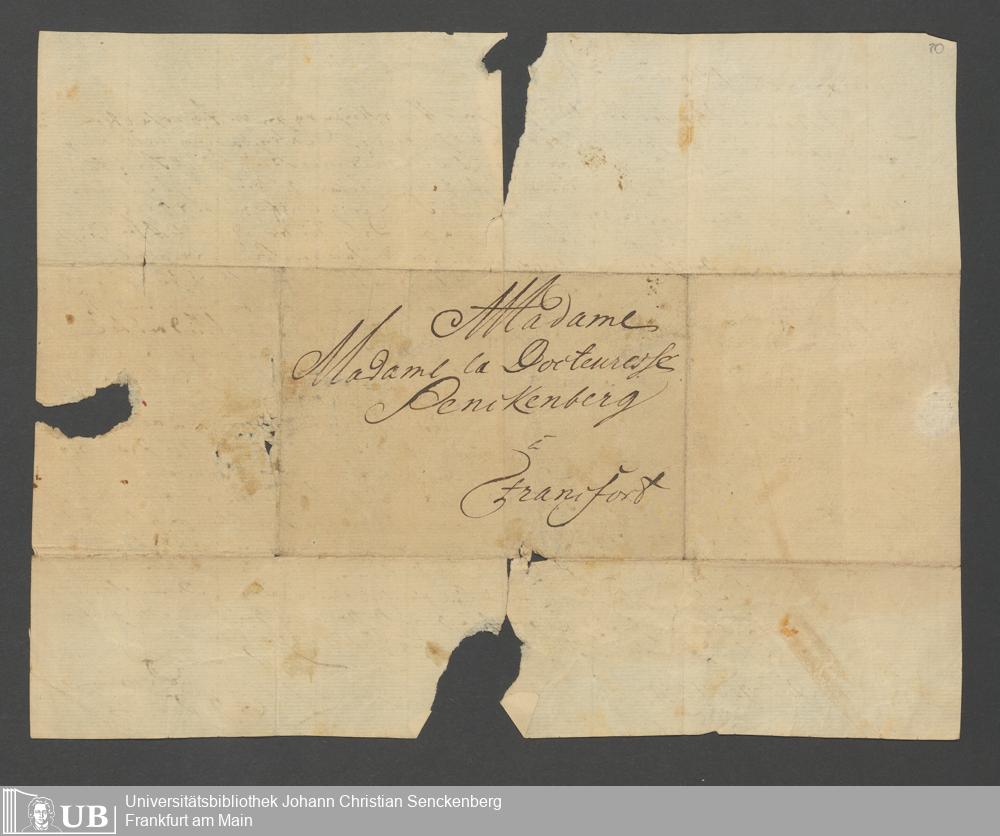 Madame
Madame la Docteuresse
Senckenberg
à
Francfort
UB
Universitätsbibliothek Johann Christian Senckenberg
Frankfurt am Main